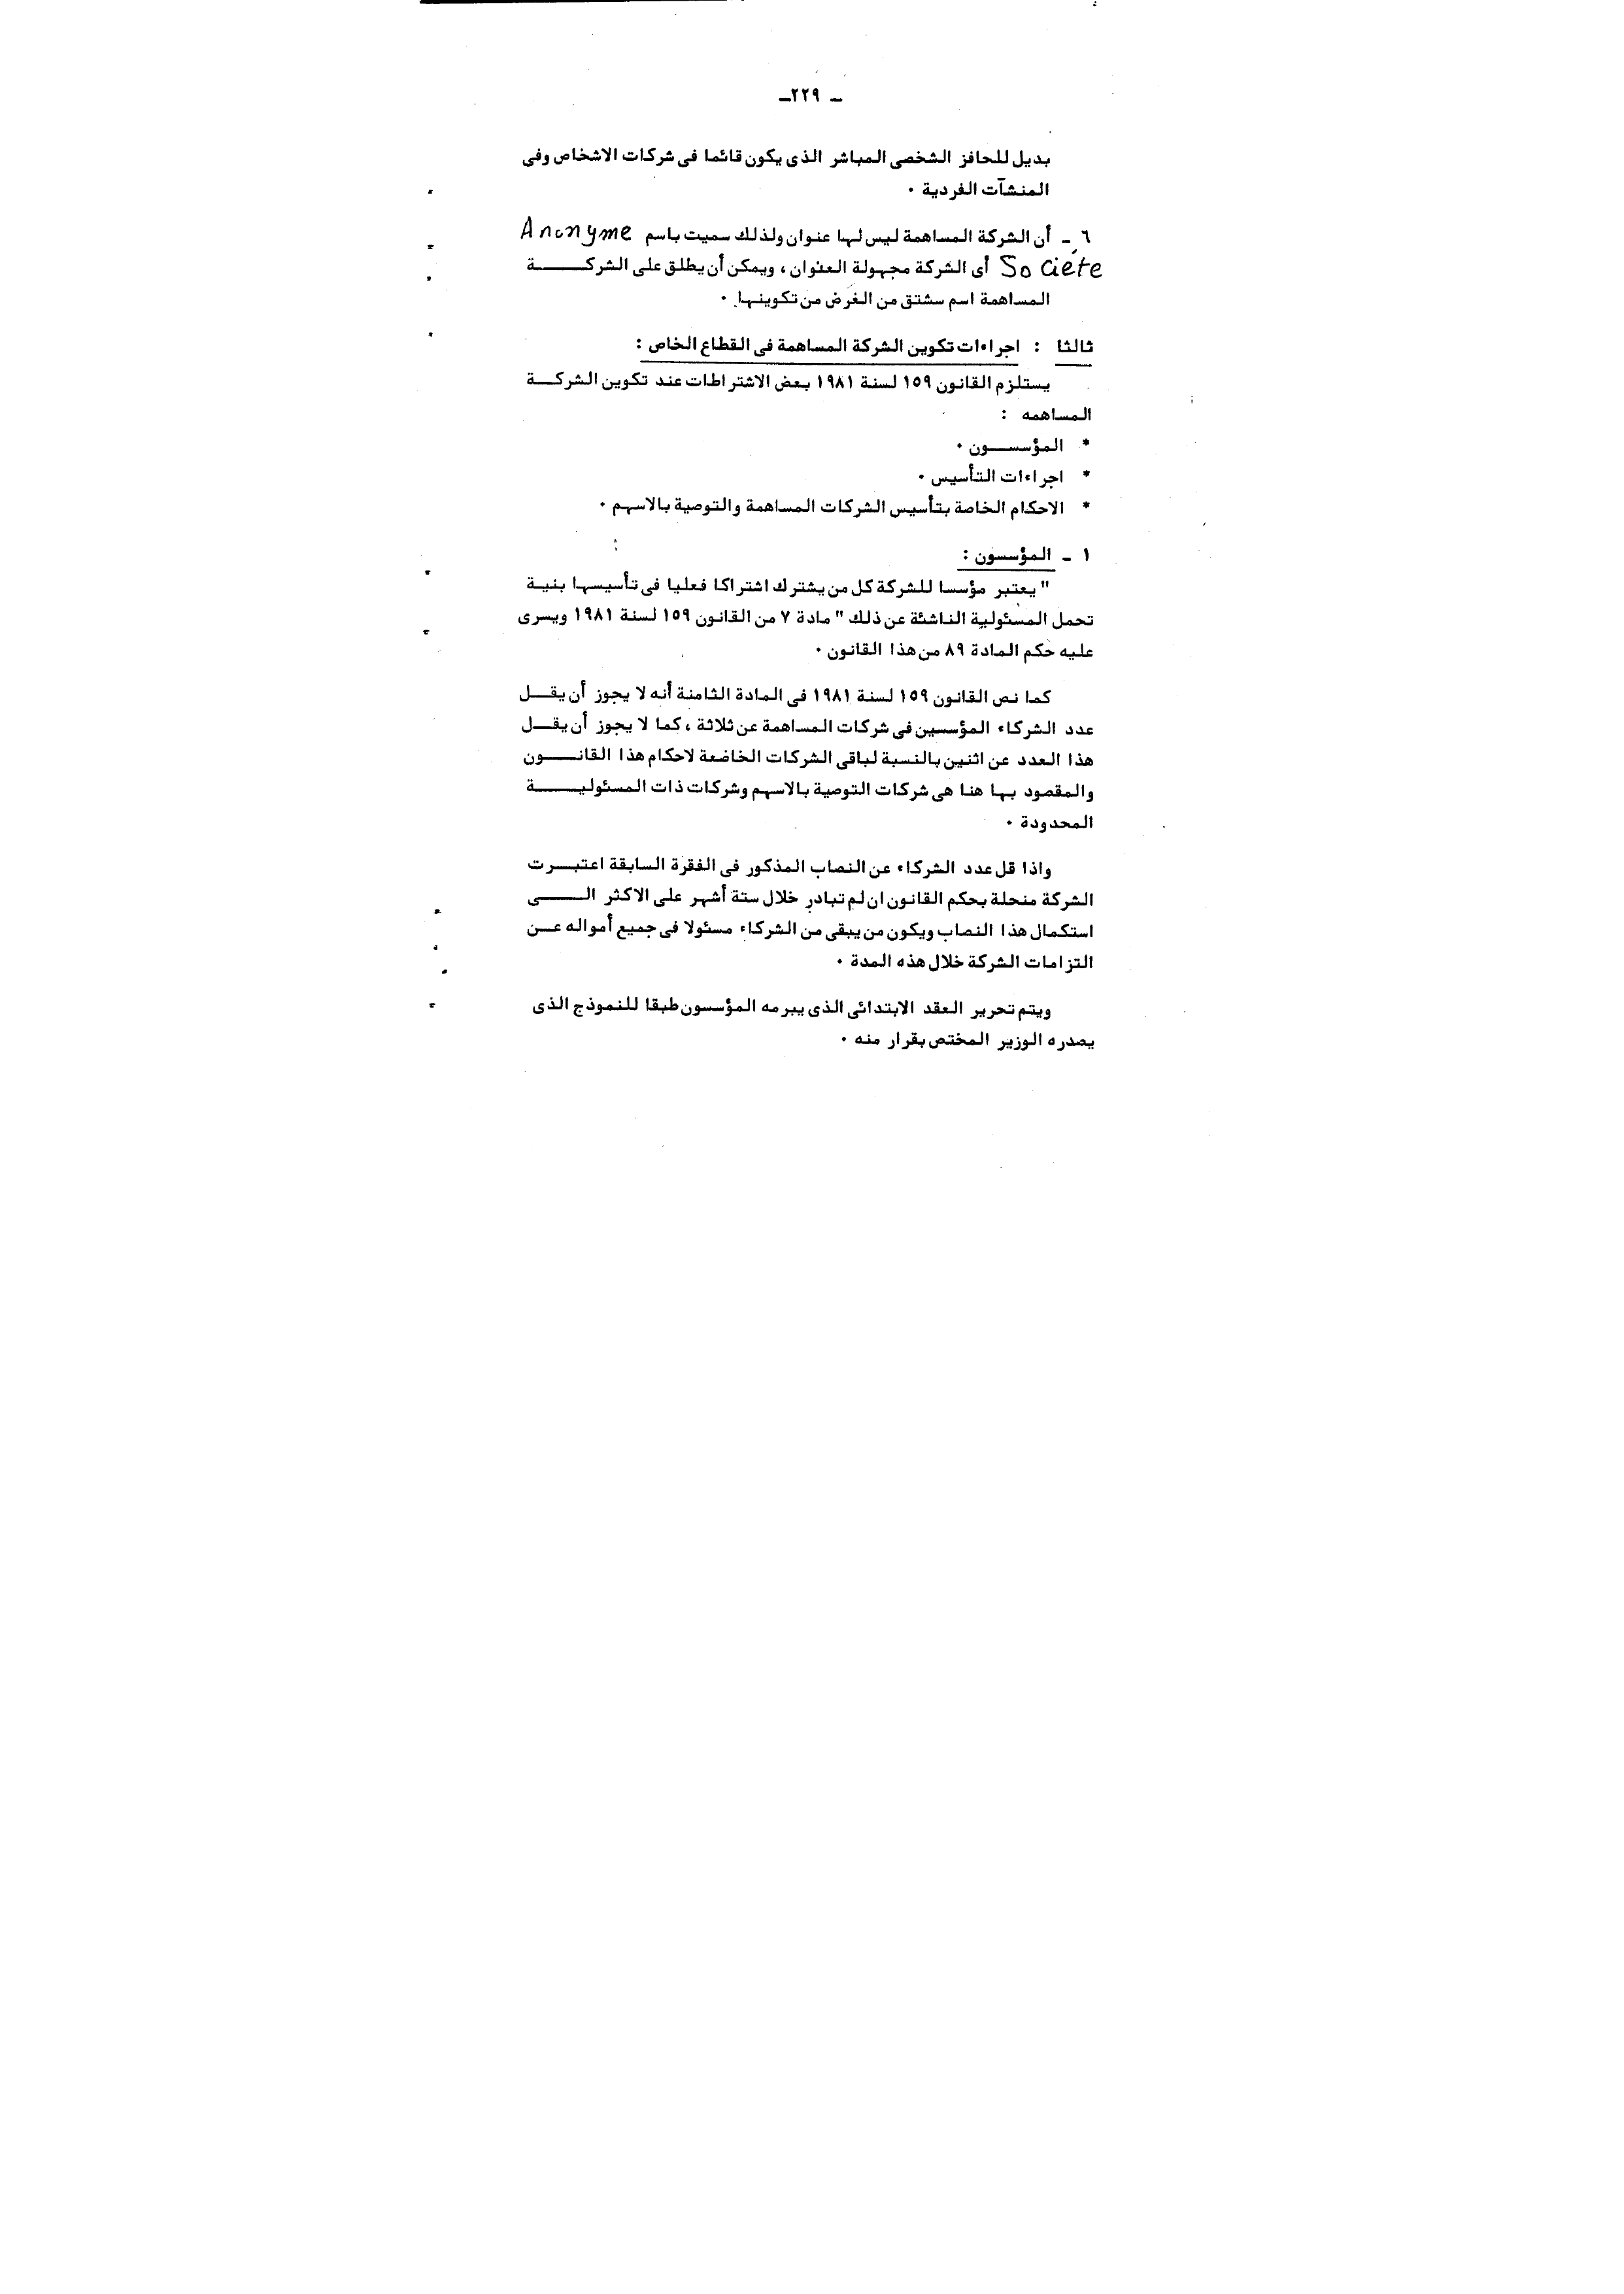 ـ ٢٢٩ـ
بديل للحافز الشخصى المباشر الذى يكون قائما فى شركات الاشخاص وفى
المنشآت الفردية ٠
٦ ـ أن الشركة المساهمة ليس لها عنوان ولذلك سميت باسم Anonyme
Societe أى الشركة مجهولة العنوان ، ويمكن أن يطلق على الشركـــــــة
المساهمة اسم سشتق من الغرض من تكوينها ٠
ثالثا : اجراءات تكوين الشركة المساهمة فى القطاع الخاص :
يستلزم القانون ١٥٩ لسنة ١٩٨١ بعض الاشتراطات عند تكوين الشركـــة
المساهمه :
* المؤسســـــون ٠
* اجراءات التأسيس ٠
* الاحكام الخاصة بتأسيس الشركات المساهمة والتوصية بالاسهم ٠
١ ـ المؤسسون :
" يعتبر مؤسسا للشركة كل من يشترك اشتراكا فعليا فى تأسيسها بنيـة
تحمل المسئولية الناشئة عن ذلك " مادة ٧ من القانون ١٥٩ لسنة ١٩٨١ ويسرى
عليه حكم المادة ٨٩ من هذا القانون ٠
كما نص القانون ١٥٩ لسنة ١٩٨١ فى المادة الثامنة أنه لا يجوز أن يقــــل
عدد الشركاء المؤسسين فى شركات المساهمة عن ثلاثة ، كما لا يجوز أن يقــــل
هذا العدد عن اثنين بالنسبة لباقى الشركات الخاضعة لاحكام هذا القانـــــون
والمقصود بها هنا هى شركات التوصية بالاسهم وشركات ذات المسئوليـــــــة
المحدودة ٠
واذا قل عدد الشركاء عن النصاب المذكور فى الفقرة السابقة اعتبـــرت
الشركة منحلة بحكم القانون ان لم تبادر خلال ستة أشهر على الاكثر الـــــى
استكمال هذا النصاب ويكون من يبقى من الشركاء مسئولا فى جميع أمواله عــن
التزامات الشركة خلال هذه المدة ٠
ويتم تحرير العقد الابتدائى الذى يبرمه المؤسسون طبقا للنموذج الذى
يصدره الوزير المختص بقرار منه ٠